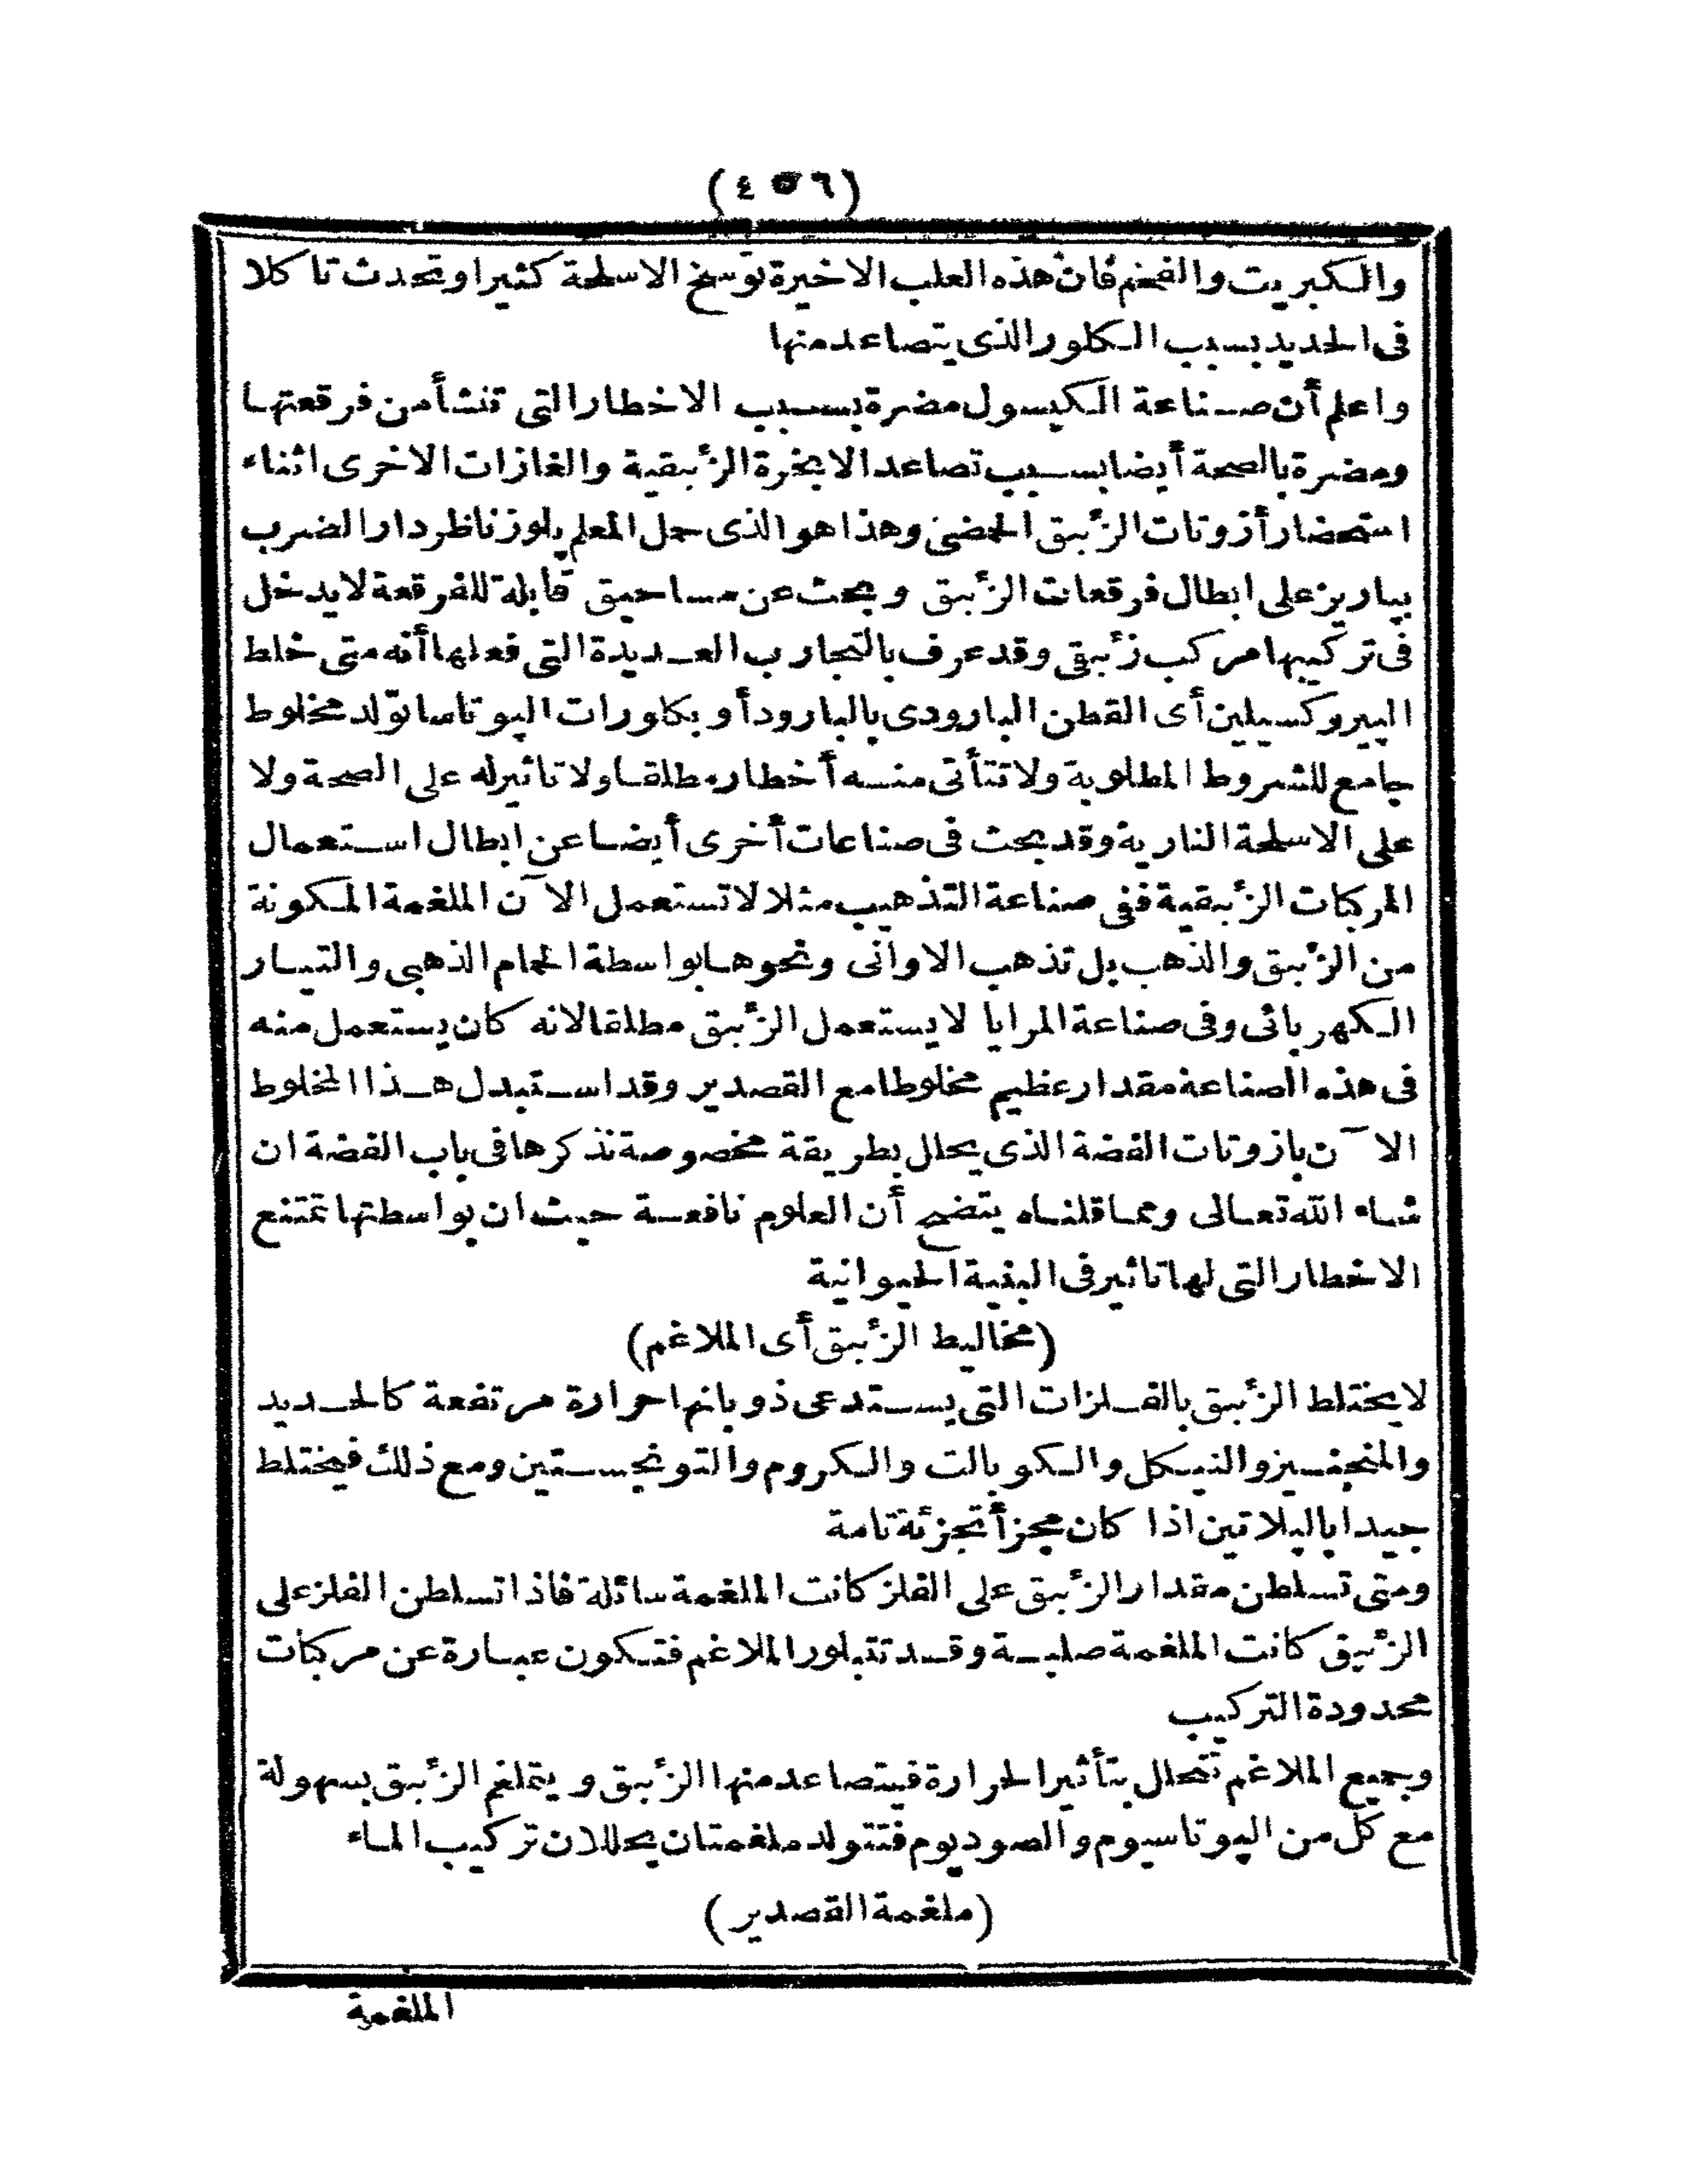 (٤٥٦)
والكبريت والفحم فان هذه العلب الاخيرة توسخ الاسلحة كثيرا وتحدث تاكلا
فى الحديد بسبب الكلور الذى يتصاعد منها
واعلم أن صناعة الكپسول مضرة بسبب الاخطار التى تنشأ من فرقعتها
ومضرة بالصحة أيضا بسبب تصاعد الابخرة الزئبقية والغازات الاخرى اثناء
استحضار أزوتات الزئبق الحمضى وهذا هو الذى حمل المعلم پلوز ناظر دار الضرب
بپاريز على ابطال فرقعات الزئبق وبحث عن مساحيق قابلة للفرقعة لا يدخل
فى تركيبها مركب زئبقى وقد عرف بالتجارب العديدة التى فعلها أنه متى خلط
الپيروكسيلين أى القطن البارودى بالبارود أو بكلورات الپوتاسا تولد مخلوط
جامع للشروط المطلوبة ولا تتأتى منه أخطار مطلقا ولا تاثير له على الصحة ولا
على الاسلحة النارية وقد بحث فى صناعات أخرى أيضا عن ابطال استعمال
المركبات الزئبقية ففى صناعة التذهيب مثلا لا تستعمل الآن الملغمة المكونة
من الزئبق والذهب بل تذهب الاوانى ونحوها بواسطة الحمام الذهبى والتيار
الكهربائى وفى صناعة المرايا لا يستعمل الزئبق مطلقا لانه كان يستعمل منه
فى هذه الصناعة مقدار عظيم مخلوطا مع القصدير وقد استبدل هذا المخلوط
الآن بازوتات الفضة الذى يحلل بطريقة مخصوصة نذكرها فى باب الفضة ان
شاء الله تعالى ومما قلناه يتضح أن العلوم نافعة حيث ان بواسطتها تمتنع
الاخطار التى لها تاثير فى البنية الحيوانية
(مخاليط الزئبق أى الملاغم)
لا يختلط الزئبق بالفلزات التى يستدعى ذوبانها حرارة مرتفعة كالحديد
والمنجنيز والنيكل والكوبالت والكروم والتونجستين ومع ذلك فيختلط
جيدا بالپلاتين اذا كان مجزأ تجزئة تامة
ومتى تسلطن مقدار الزئبق على الفلز كانت الملغمة سائلة فاذا تسلطن الفلز على
الزئبق كانت الملغمة صلبة وقد تتبلور الملاغم فتكون عبارة عن مركبات
محدودة التركيب
وجميع الملاغم تنحلل بتأثير الحرارة فيتصاعد منها الزئبق ويتملغم الزئبق بسهولة
مع كل من الپوتاسيوم والصوديوم فتتولد ملغمتان يحللان تركيب الماء
(ملغمة القصدير)
الملغمة